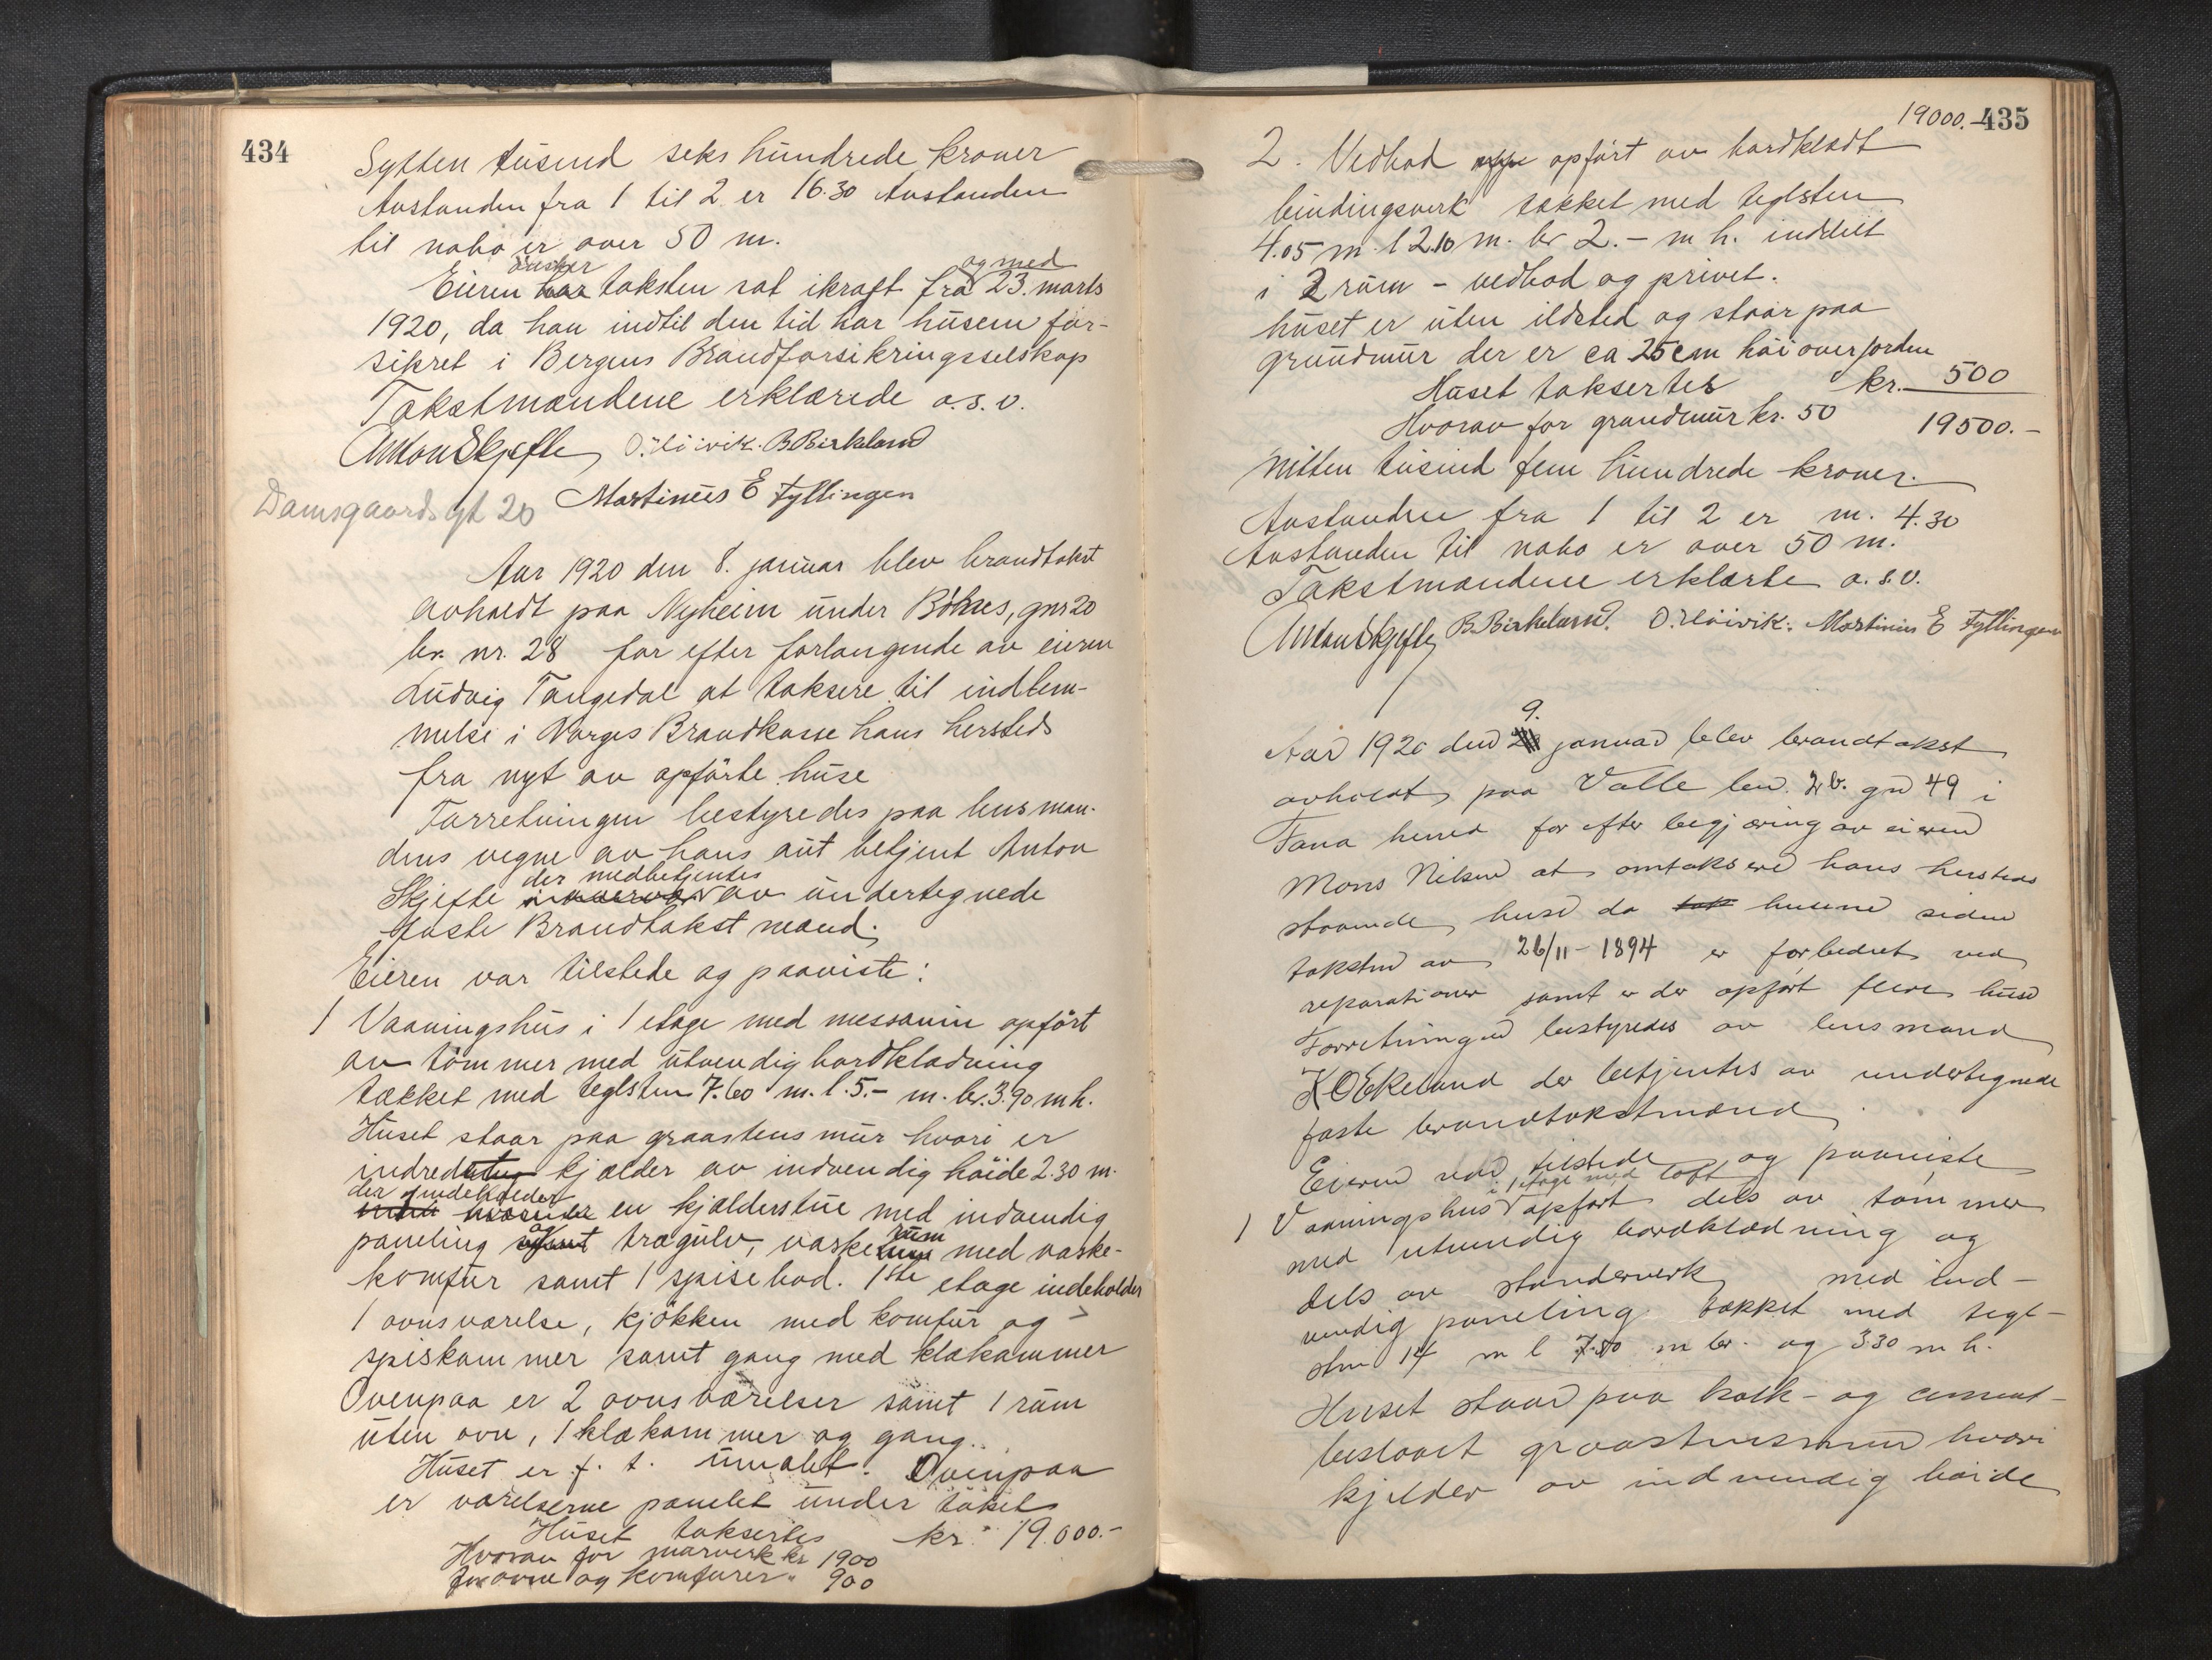 434
Sytten tusend seks hundrede kroner
Avstanden fra 1 til 2 er 16.30 Avstanden
til nabo er over 50 m.
ønsker og med
Eieren har taksten sat ikraft fra 23. marts
1920, da han indtil den tid har husene for-
sikret i Bergens Brandforsikringsselskap
Takstmændene erklærede o.s.v.
Anton Skjefle O. Høivik. B Birkeland
Damsgaards gt 20 Martinus E Fyllingen
Aar 1920 den 8. januar blev brandtakst
avholdt paa Nyheim under Bønes, gnr 20
br. nr. 28 for efter forlangende av eieren
Ludvig Tangedal at taksere til indlem-
melse i Norges Brandkasse hans hersteds
fra nyt av opførte huse
Forretningen bestyredes paa lensman-
dens vegne av hans aut betjent Anton
der medbetjentes
Skjefle av undertegnede
faste Brandtakst mænd.
Eieren var tilstede og paaviste:
1 Vaaningshus i 1 etage med messanin opført
av tømmer med utvendig bordklædning
tækket med teglsten 7.60 m. l. 5.- m. br. 3.90 m h.
Huset staar paa graastens mur hvori er
indredet kjælder av indvendig høide 2.30 m.
der indeholder
en kjælderstue med indvendig
og rum
paneling samt trægulv, vaske med vaske-
komfur samt 1 spisebod. 1ste etage indeholder
1 ovnsværelse, kjøkken med komfur og
spiskammer samt gang med klækammer
Ovenpaa er 2 ovnsværelser samt 1 rum
uten ovn, 1 klækammer og gang.
Huset er f. t. umalt. Ovenpaa
er værelserne panelet under taket
Huset takseres kr. 19.000.-
Hvorav for murverk kr 1900
for ovne og komfurer " 900
19000.- 435
2. Vedbod opført av bordklædt
bindingsverk tækket med teglsten
4.05 m. l 2.10 m. br 2.- m h. inddelt
i 2 rum - vedbod og privet.
huset er uten ildsted og staar paa
grundmur der er ca 25 cm høi over jorden
Huset taksertes kr. 500
Hvorav for grundmur kr. 50 19500.-
Nitten tusind fem hundrede kroner.
Avstanden fra 1 til 2 er m. 4.30
Avstanden til nabo er over 50 m.
Takstmændene erklærte o.s.v.
Anton Skjefle B. Birkeland. O. Høivik. Martinus E Fyllingen
9.
Aar 1920 den januar blev brandtakst
avholdt paa Valle bn. 2b. gn 49 i
Fana herred for efter begjæring av eieren
Mons Nilsen at omtaksere hans hersteds
staaende huse da husene siden
taksten av 26/11 - 1894 er forbedret ved
reparationer samt er der opført flere huse
Forretningen bestyredes av lensmand
K O Ekeland der betjentes av undertegnede
faste brandtakstmænd
Eieren var tilstede og paaviste
i 1 etage med loft
1 Vaaningshus opført dels av tømmer
med utvendig bordklædning og
dels av standerverk med ind-
vendig paneling tækket med tegl-
sten 14 m l 7.80 m br. og 3.30 m h.
Huset staar paa kalk- og cement-
beslaaet graastensmur hvori
kjelder av indvendig høide